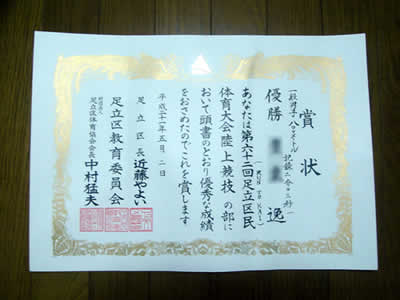 賞状
一般男子 八〇〇メートル
記録 二分〇三秒
優勝 逸
(RUN TO KAL)
あなたは第六十二回足立区民
体育大会陸上競技の部に
おいて頭書のとおり優秀な成績
をおさめたのでこれを賞します
平成二十一年五月二日
足立区長 近藤やよい
足立区教育委員会
財団法人
足立区体育協会会長 中村猛夫